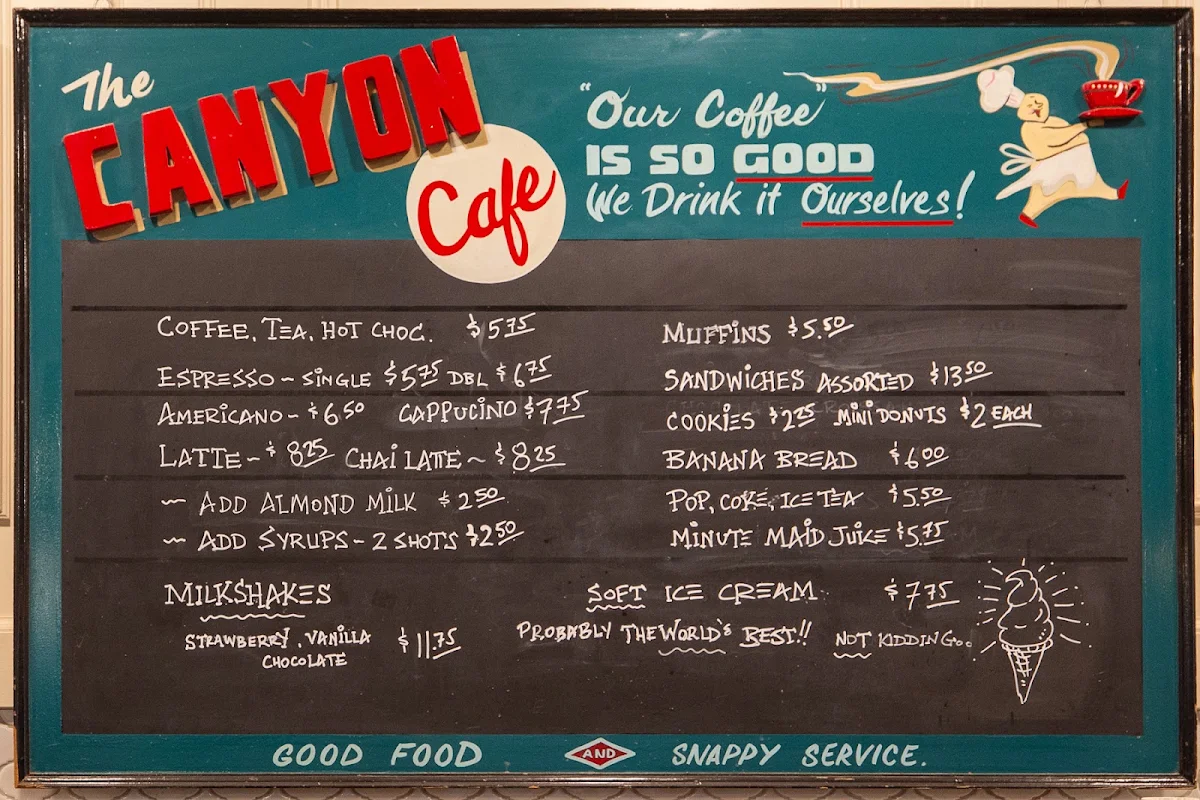 The
CANYON
Cafe
"Our Coffee"
IS SO GOOD
We Drink it Ourselves!
COFFEE, TEA, HOT CHOC. $5.75
ESPRESSO ~ SINGLE $5.75 DBL $6.75
AMERICANO ~ $6.50 CAPPUCINO $7.75
LATTE ~ $8.25 CHAI LATTE ~ $8.25
~ ADD ALMOND MILK $2.50
~ ADD SYRUPS - 2 SHOTS $2.50
MILKSHAKES
STRAWBERRY, VANILLA $11.75
CHOCOLATE
MUFFINS $5.50
SANDWICHES ASSORTED $13.50
COOKIES $2.25 MINI DONUTS $2 EACH
BANANA BREAD $6.00
POP, COKE, ICE TEA $5.50
MINUTE MAID JUICE $5.75
SOFT ICE CREAM $7.75
PROBABLY THE WORLD'S BEST!! NOT KIDDING...
GOOD FOOD AND SNAPPY SERVICE.